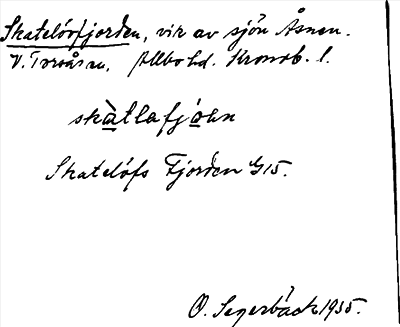 Skatelöfjorden, vik av sjön Åsnen.
V. Torsås sn. Allbo hd. Kronob. l.
skàtlafjoan
Skatelöfs Fjorden G 15.
O. Segerbäck 1935.